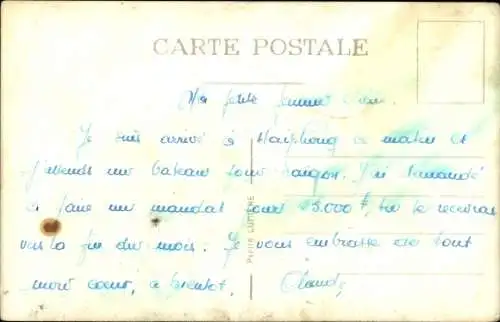 CARTE POSTALE
Ma petite femme chérie.
Je suis arrivé à Haiphong ce matin et
j'attends un bateau pour Saigon. J'ai demandé
à faire un mandat pour 25.000 f, tu le recevras
vers la fin du mois. Je vous embrasse de tout
mon coeur, à bientôt. Claude
Photo LUMIÈRE